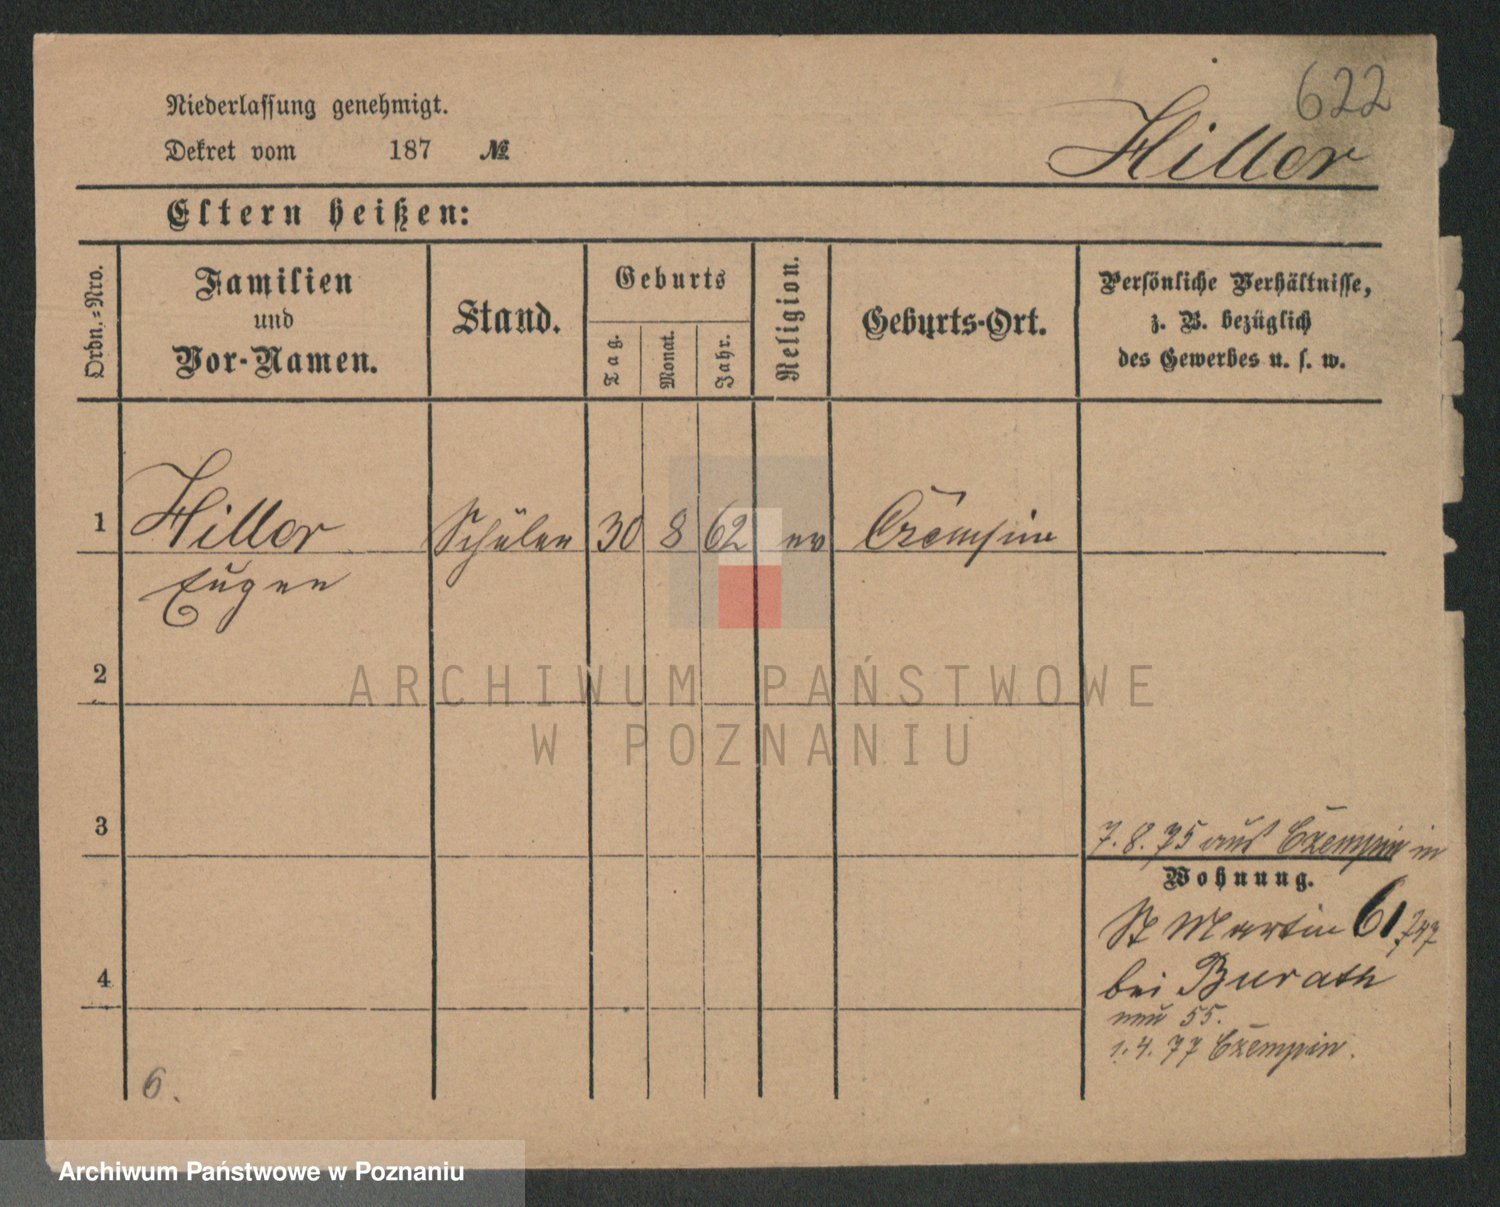 622
Niederlassung genehmigt.
Dekret vom 187 № Hiller
Eltern heißen:
Ordn.-Nro. Familien und Vor-Namen. Stand. Geburts Tag. Monat. Jahr. Religion. Geburts-Ort. Persönliche Verhältnisse, z. B. bezüglich des Gewerbes u. s. w.
1 Hiller Schüler 30 8 62 ev Czempin
Eugen
2
ARCHIWUM PAŃSTWOWE
W POZNANIU
3
7.8.75 aus Czempin in
Wohnung.
St Martin 61
4
bei Burath
neu 55.
1.4.77 Czempin.
6.
Archiwum Państwowe w Poznaniu